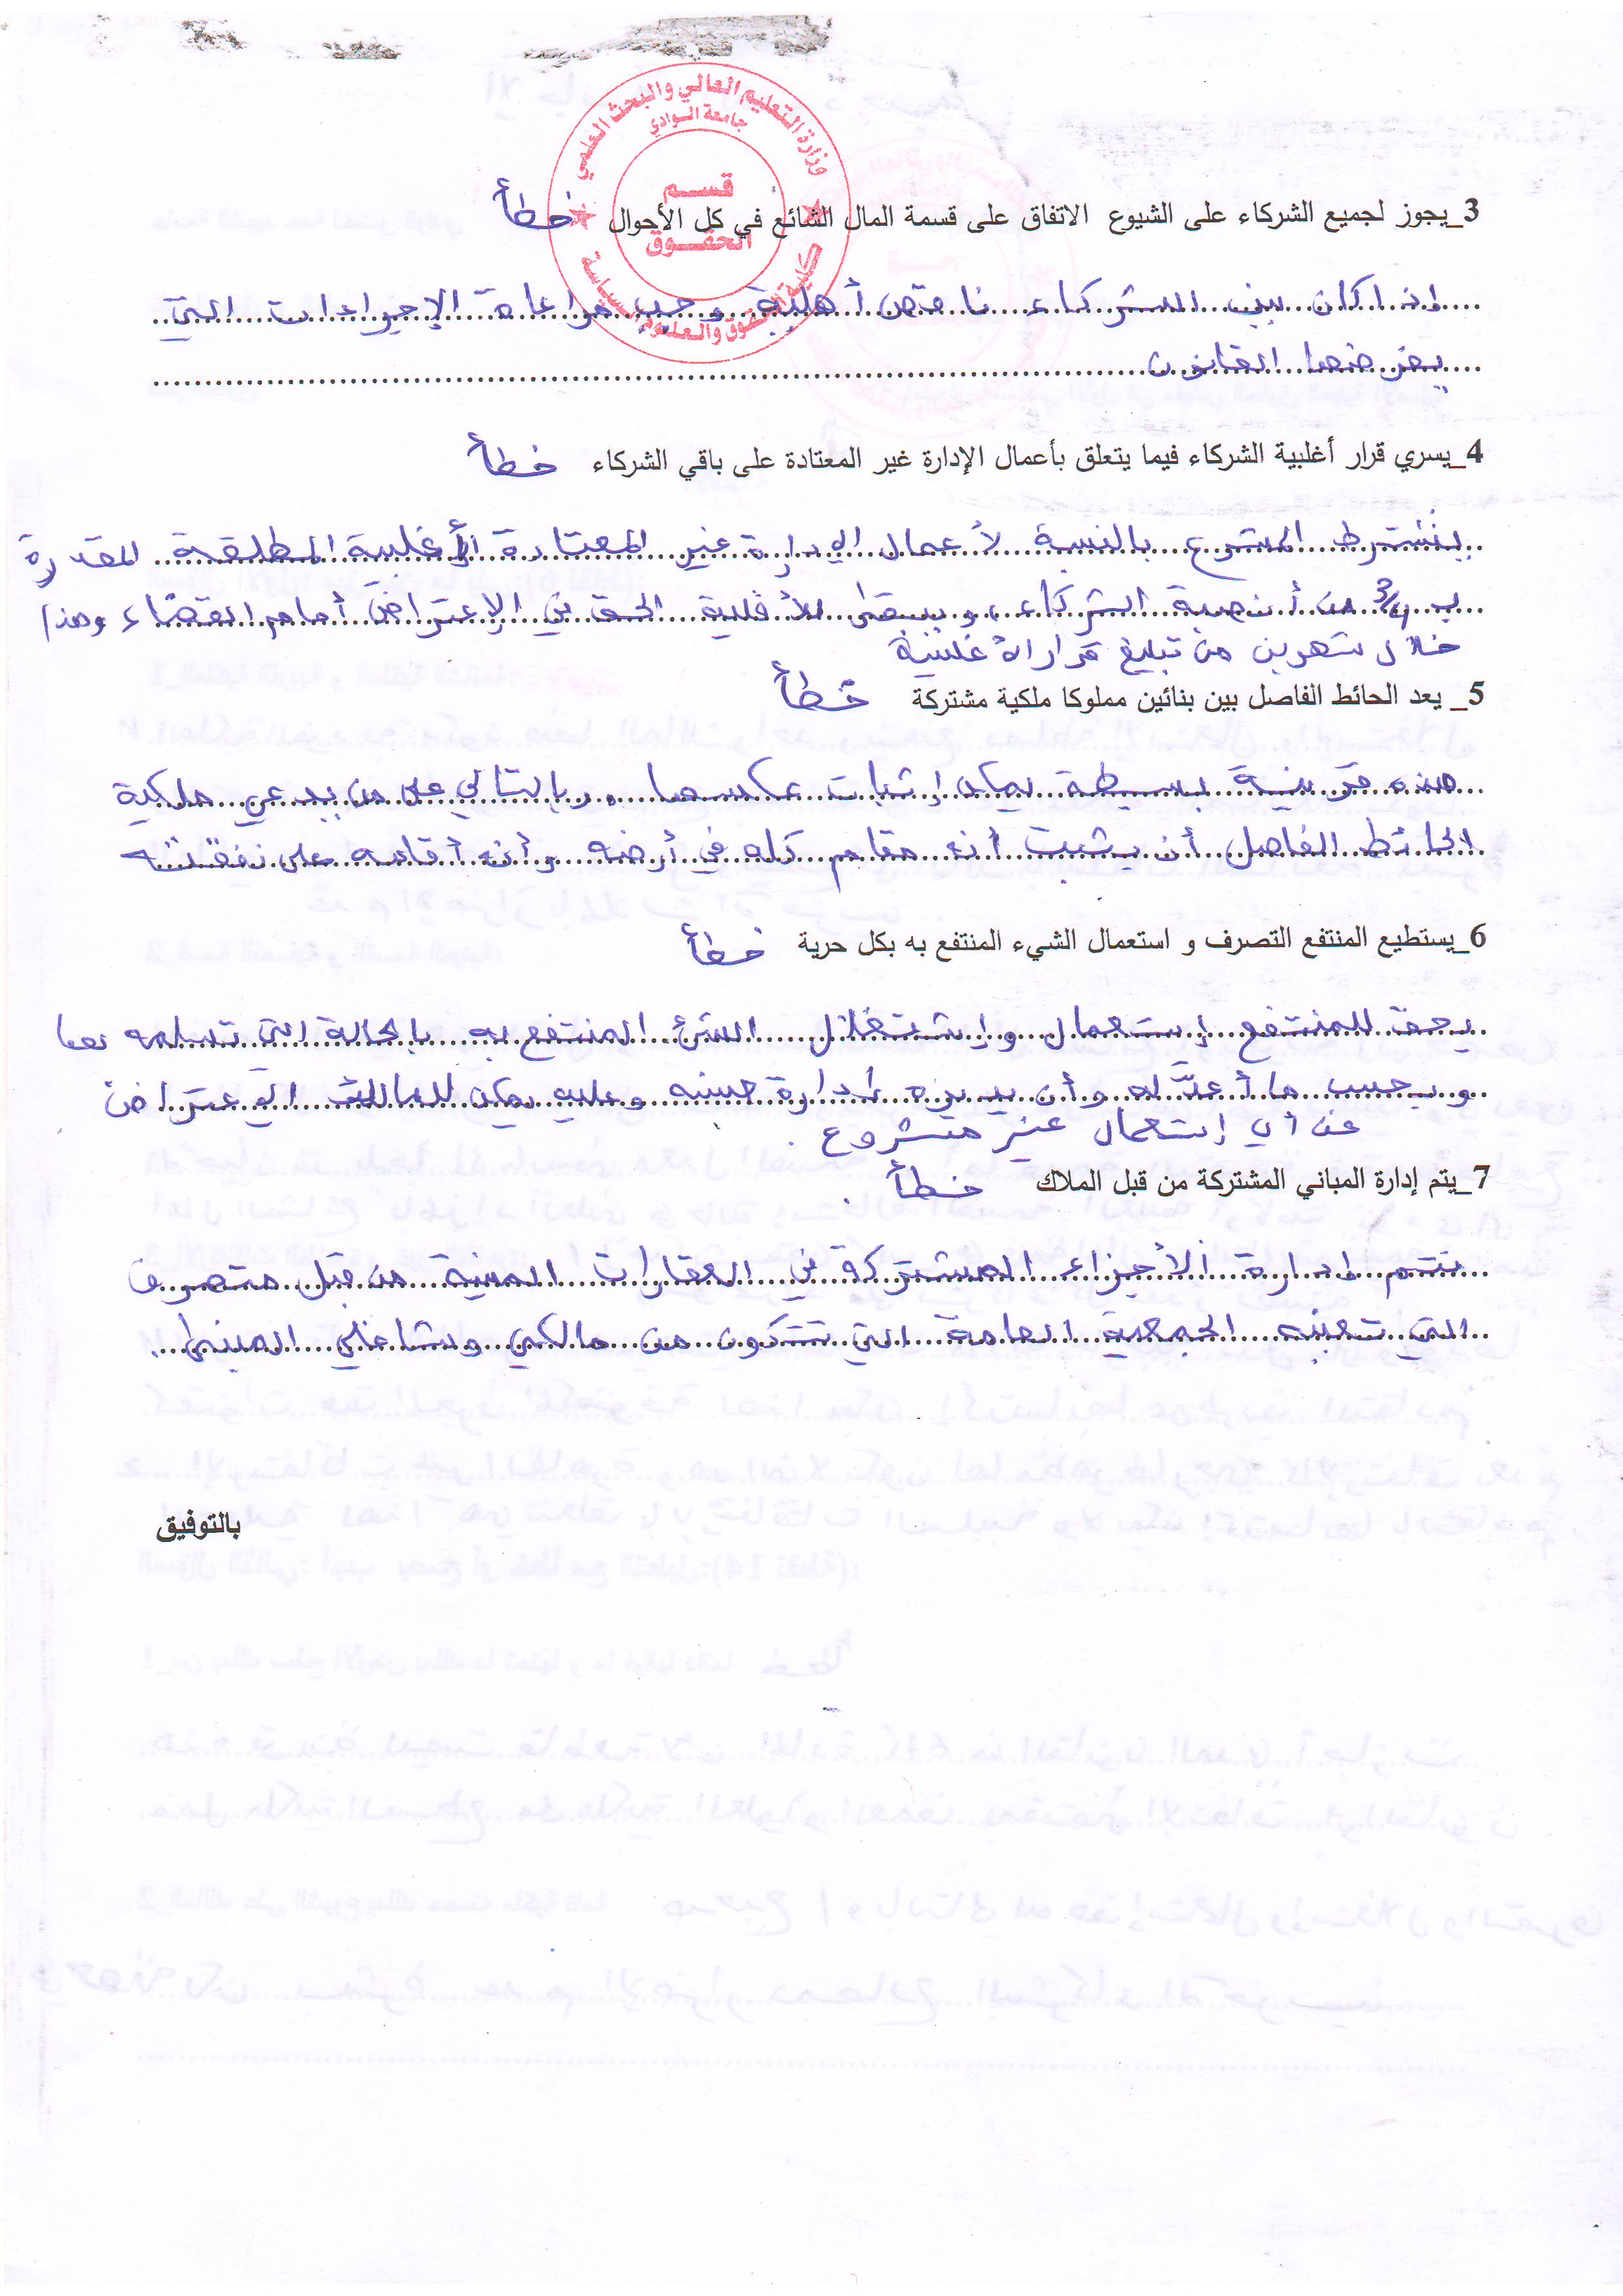 وزارة التعليم العالي والبحث العلمي
جامعة الوادي
قسم
الحقوق
كلية الحقوق والعلوم السياسية
3_يجوز لجميع الشركاء على الشيوع الاتفاق على قسمة المال الشائع في كل الأحوال خطأ
إذا كان بين الشركاء ناقص أهلية وجب مراعاة الإجراءات التي
يفرضها القانون
4_يسري قرار أغلبية الشركاء فيما يتعلق بأعمال الإدارة غير المعتادة على باقي الشركاء خطأ
يشترط المشرع بالنسبة لأعمال الإدارة غير المعتادة الأغلبية المطلقة المقدرة
ب 3/4 من أنصبة الشركاء، ويبقى للأقلية الحق في الإعتراض أمام القضاء وهذا
خلال شهرين من تبليغ قرار الأغلبية
5_ يعد الحائط الفاصل بين بنائين مملوكا ملكية مشتركة خطأ
هذه قرينة بسيطة يمكن إثبات عكسها. وبالتالي على من يدعي ملكية
الحائط الفاصل أن يثبت أنه مقام كله في أرضه وأنه أقامه على نفقته
6_يستطيع المنتفع التصرف و استعمال الشيء المنتفع به بكل حرية خطأ
يحق للمنتفع إستعمال وإستغلال الشئ المنتفع به بالحالة التي تسلمه بها
وبحسب ما أعدّ له وأن يديره إدارة حسنة وعليه يمكن للمالك الإعتراض
عن أي إستعمال غير مشروع.
7_يتم إدارة المباني المشتركة من قبل الملاك خطأ.
تتم إدارة الأجزاء المشتركة في العقارات المبنية من قبل متصرف
التي تعينه الجمعية العامة التي تتكون من مالكي وشاغلي المبنى.
بالتوفيق